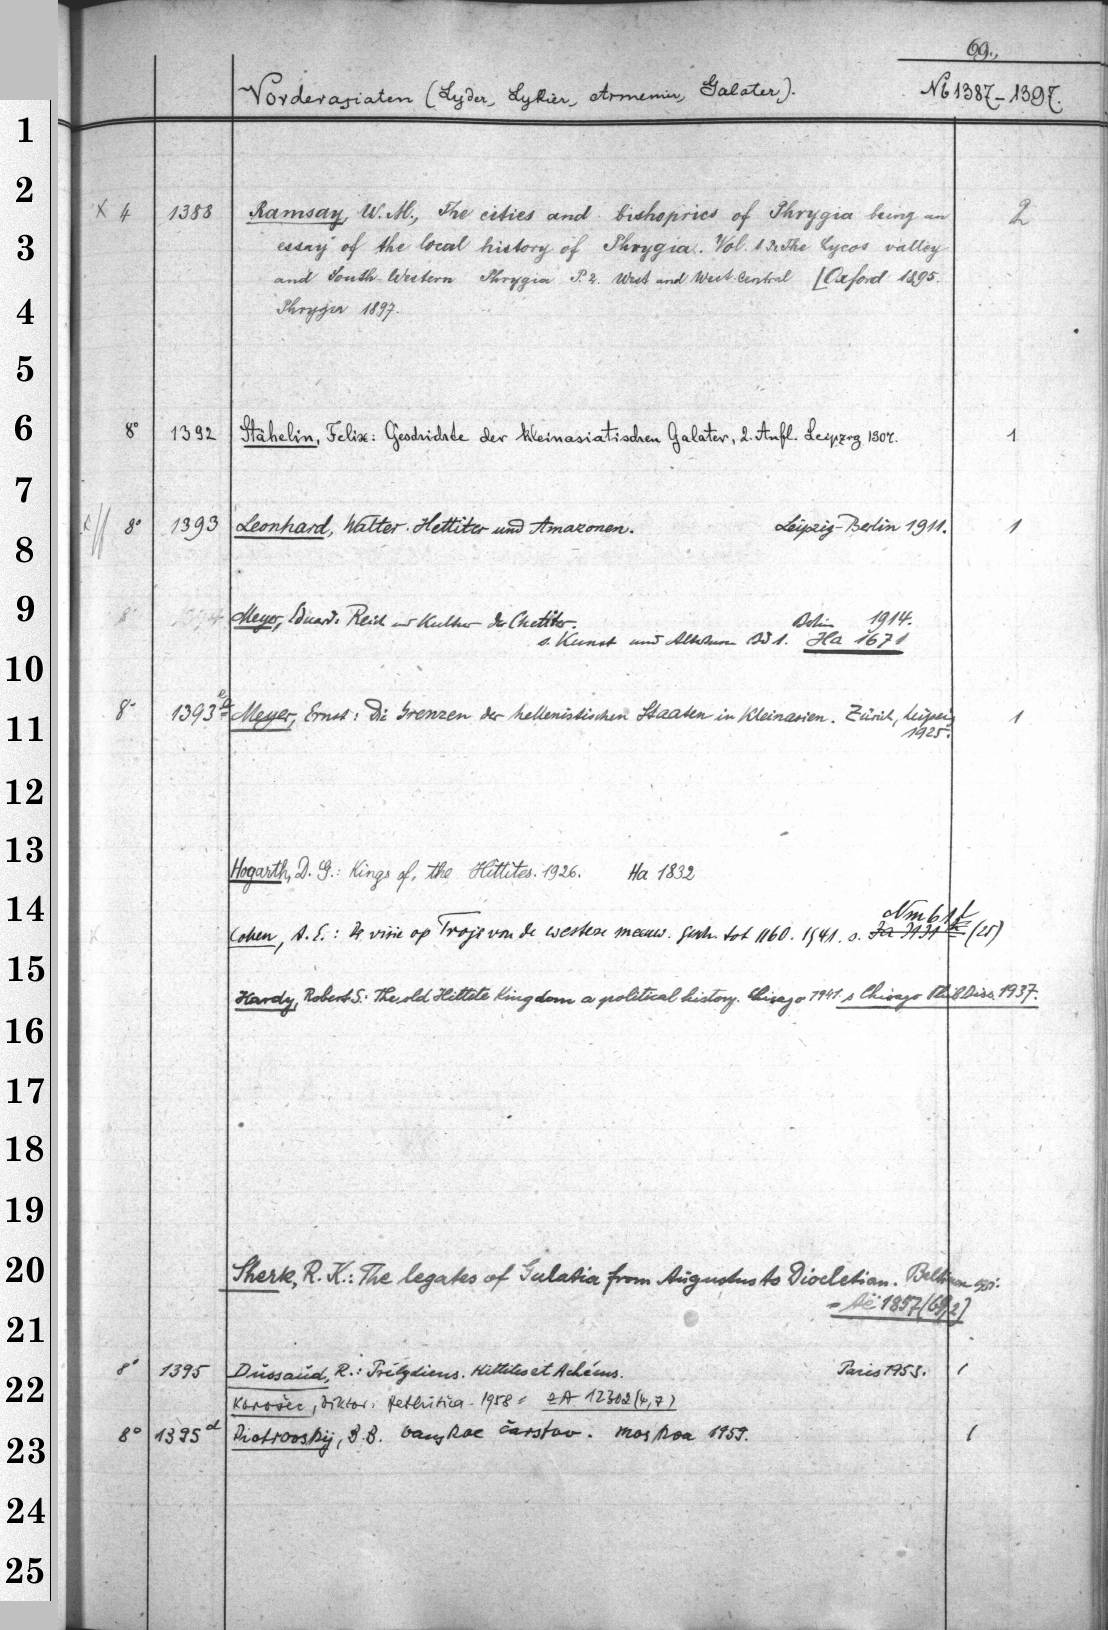 69.
Vorderasiaten (Lyder, Lykier, Armenier, Galater).
№ 1387-1397.
1
2
x 4 1388 Ramsay, W. M., The cities and bishoprics of Phrygia being an 2
3
essay of the local history of Phrygia. Vol. 1 P. The Lycos valley
and South-Western Phrygia P. 2. West and West-Central [Oxford 1895.
4
Phrygia 1897.
5
6
8° 1392 Stähelin, Felix: Geschichte der Kleinasiatischen Galater, 2. Aufl. Leipzig 1907. 1
7
8° 1393 Leonhard, Walter. Hettiter und Amazonen. Leipzig-Berlin 1911. 1
8
9
8° 1394 Meyer, Eduard: Reich und Kultur der Chetiter. Berlin 1914.
s. Kunst und Altertum Bd 1. Ha 1671
10
8° 1393 Meyer, Ernst: Die Grenzen der hellenistischen Staaten in Kleinasien. Zürich, Leipzig 1
11
1925.
12
13
Hogarth, D. G.: Kings of the Hittites. 1926. Ha 1832
14
Nm 61
Cohen, A. E.: De visie op Troje van de westerse middeleeuw. tot 1160. 1941. s. (25)
15
Hardy, Robert S.: The old Hittite Kingdom a political history. Chicago 1941. s Chicago Phil Diss. 1937.
16
17
18
19
20
Sherk, R. K.: The legates of Galatia from Augustus to Diocletian. Baltimore
= Aë 1857 (69,2)
21
8° 1395 Dussaud, R.: Prélydiens. Hittites et Achéens. Paris 1953. 1
22
Korošec, Viktor: Hethitica. 1958 = ZA 12302 (4,7)
8° 1395 d Piotrovskij, B. B. Vanskoe carstvo. Moskva 1959. 1
23
24
25